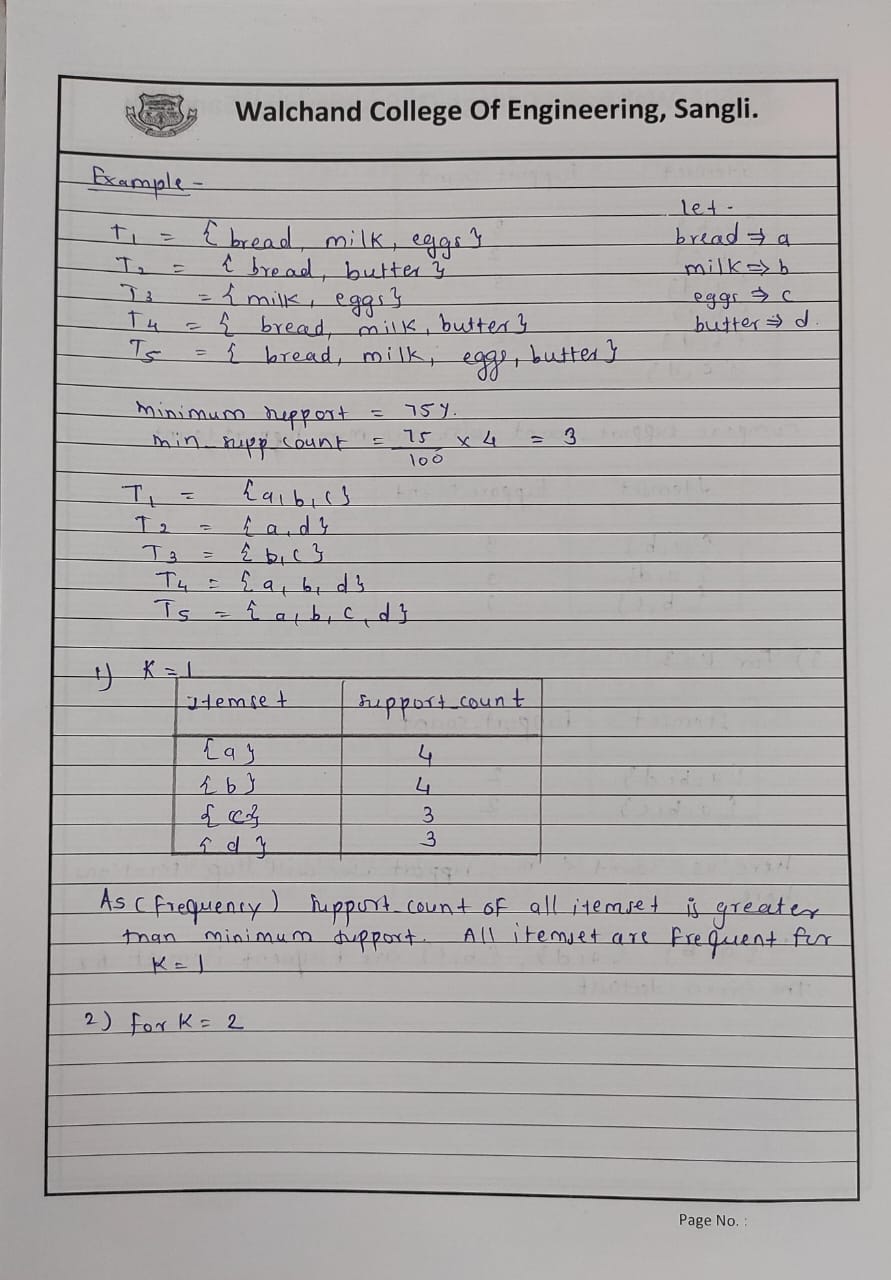 Walchand College Of Engineering, Sangli.
Example -
let -
T1 = { bread, milk, eggs } bread ⇒ a
T2 = { bread, butter } milk ⇒ b
T3 = { milk, eggs } eggs ⇒ c
T4 = { bread, milk, butter } butter ⇒ d.
T5 = { bread, milk, eggs, butter }
minimum support = 75%.
min_supp_count = 75/100 x 4 = 3
T1 = {a, b, c}
T2 = {a, d}
T3 = {b, c}
T4 = {a, b, d}
T5 = {a, b, c, d}
1) K = 1
itemset support_count
{a} 4
{b} 4
{c} 3
{d} 3
As (frequency) support_count of all itemset is greater
than minimum support. All itemset are frequent for
K = 1
2) for K = 2
Page No. :